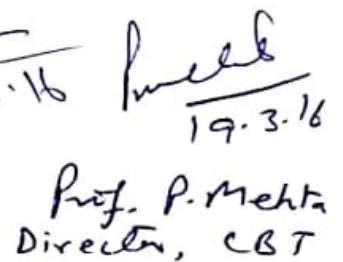 .16
19.3.16
Prof. P. Mehta
Director, CBT